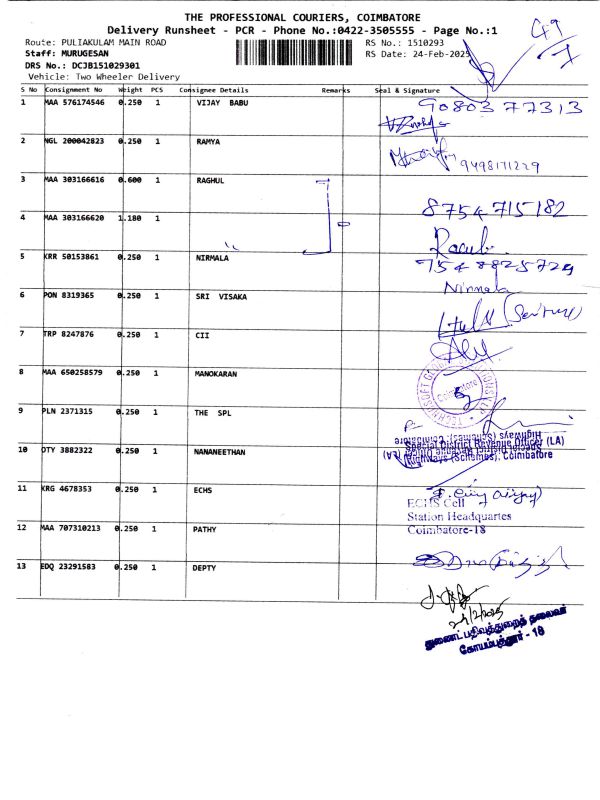 THE PROFESSIONAL COURIERS, COIMBATORE
Delivery Runsheet - PCR - Phone No.:0422-3505555 - Page No.:1
Route: PULIAKULAM MAIN ROAD RS No.: 1510293
Staff: MURUGESAN RS Date: 24-Feb-2025
DRS No.: DCJB151029301
Vehicle: Two Wheeler Delivery
49
S No Consignment No Weight PCS Consignee Details Remarks Seal & Signature
1 MAA 576174546 0.250 1 VIJAY BABU 90803 77313
2 NGL 200042823 0.250 1 RAMYA 9498171229
3 MAA 303166616 0.600 1 RAGHUL 8754 715182
4 MAA 303166620 1.180 1
5 KRR 50153861 0.250 1 NIRMALA
Nirmala
6 PON 8319365 0.250 1 SRI VISAKA
7 TRP 8247876 0.250 1 CII
8 MAA 650258579 0.250 1 MANOKARAN
Coimbatore
9 PLN 2371315 0.250 1 THE SPL
Special District Revenue Officer (LA)
Highways (Schemes), Coimbatore
10 OTY 3882322 0.250 1 NANANEETHAN
11 KRG 4678353 0.250 1 ECHS
ECHS Cell
Station Headquartes
Coimbatore-18
12 MAA 707310213 0.250 1 PATHY
13 EDQ 23291583 0.250 1 DEPTY
24/2/2025
துணைப் பதிவுத்துறைத் தலைவர்
கோயம்புத்தூர் - 18